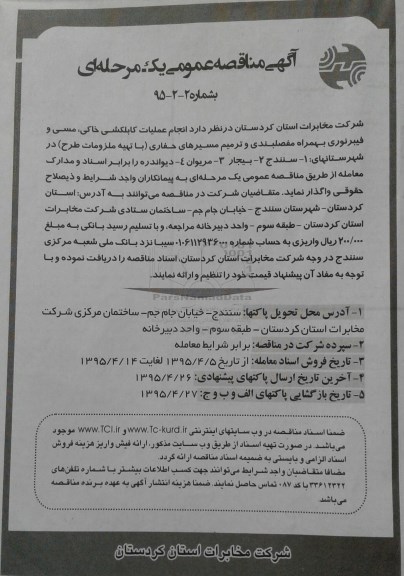 آگهی مناقصه عمومی یک مرحله‌ای
بشماره ۲-۲-۹۵
شرکت مخابرات استان کردستان درنظر دارد انجام عملیات کابلکشی خاکی، مسی و
فیبرنوری بهمراه مفصلبندی و ترمیم مسیرهای حفاری (با تهیه ملزومات طرح) در
شهرستانهای: ۱- سنندج ۲- بیجار ۳- مریوان ۴- دیواندره را برابر اسناد و مدارک
معامله از طریق مناقصه عمومی یک مرحله‌ای به پیمانکاران واجد شرایط و ذیصلاح
حقوقی واگذار نماید. متقاضیان شرکت در مناقصه می‌توانند به آدرس: استان
کردستان- شهرستان سنندج - خیابان جام جم- ساختمان ستادی شرکت مخابرات
استان کردستان - طبقه سوم - واحد دبیرخانه مراجعه، و با تسلیم رسید بانکی به مبلغ
۲۰۰/۰۰۰ ریال واریزی به حساب شماره ۰۱۰۶۱۱۲۹۳۶۰۰۰ سیبا نزد بانک ملی شعبه مرکزی
سنندج در وجه شرکت مخابرات استان کردستان، اسناد مناقصه را دریافت نموده و با
توجه به مفاد آن پیشنهاد قیمت خود را تنظیم و ارائه نمایند.
ParsNamadData
۱- آدرس محل تحویل پاکتها: سنندج- خیابان جام جم- ساختمان مرکزی شرکت
مخابرات استان کردستان - طبقه سوم - واحد دبیرخانه
۲- سپرده شرکت در مناقصه: برابر شرایط معامله
۳- تاریخ فروش اسناد معامله: از تاریخ ۱۳۹۵/۴/۵ لغایت ۱۳۹۵/۴/۱۴
۴- آخرین تاریخ ارسال پاکتهای پیشنهادی: ۱۳۹۵/۴/۲۶
۵- تاریخ بازگشایی پاکتهای الف و ب و ج: ۱۳۹۵/۴/۲۷
ضمنا اسناد مناقصه در وب سایتهای اینترنتی www.Tc-kurd.ir و www.TCI.ir موجود
می‌باشد. در صورت تهیه اسناد از طریق وب سایت مذکور، ارائه فیش واریز هزینه فروش
اسناد الزامی و بایستی به ضمیمه اسناد مناقصه ارائه گردد.
مضافا متقاضیان واجد شرایط می‌توانند جهت کسب اطلاعات بیشتر با شماره تلفن‌های
۳۳۶۱۲۴۲۲ با کد ۰۸۷ تماس حاصل نمایند. ضمنا هزینه انتشار آگهی به عهده برنده مناقصه
می‌باشد.
شرکت مخابرات استان کردستان